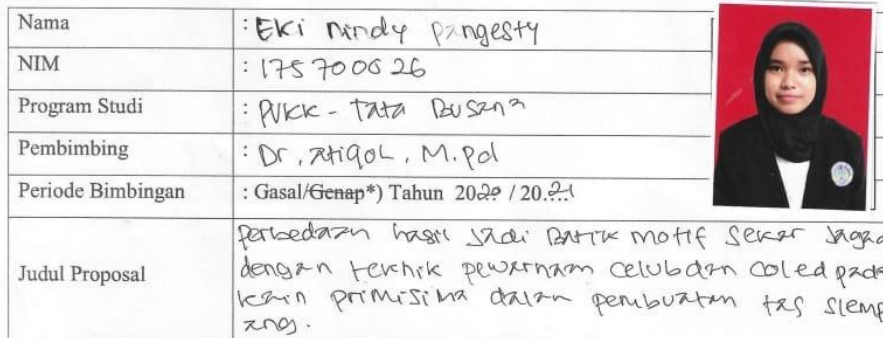 Nama : Eki Nindy Pangesty
NIM : 17570006 26
Program Studi : PVKK - Tata Busana
Pembimbing : Dr. Atiqoh, M.Pd
Periode Bimbingan : Gasal/Genap*) Tahun 2020 / 20.21
Perbedaan hasil Jadi Batik motif Sekar Jagad
Judul Proposal dengan tekhnik pewarnaan celub dan coled pada
kain primisima dalam pembuatan tas slemp
ang.